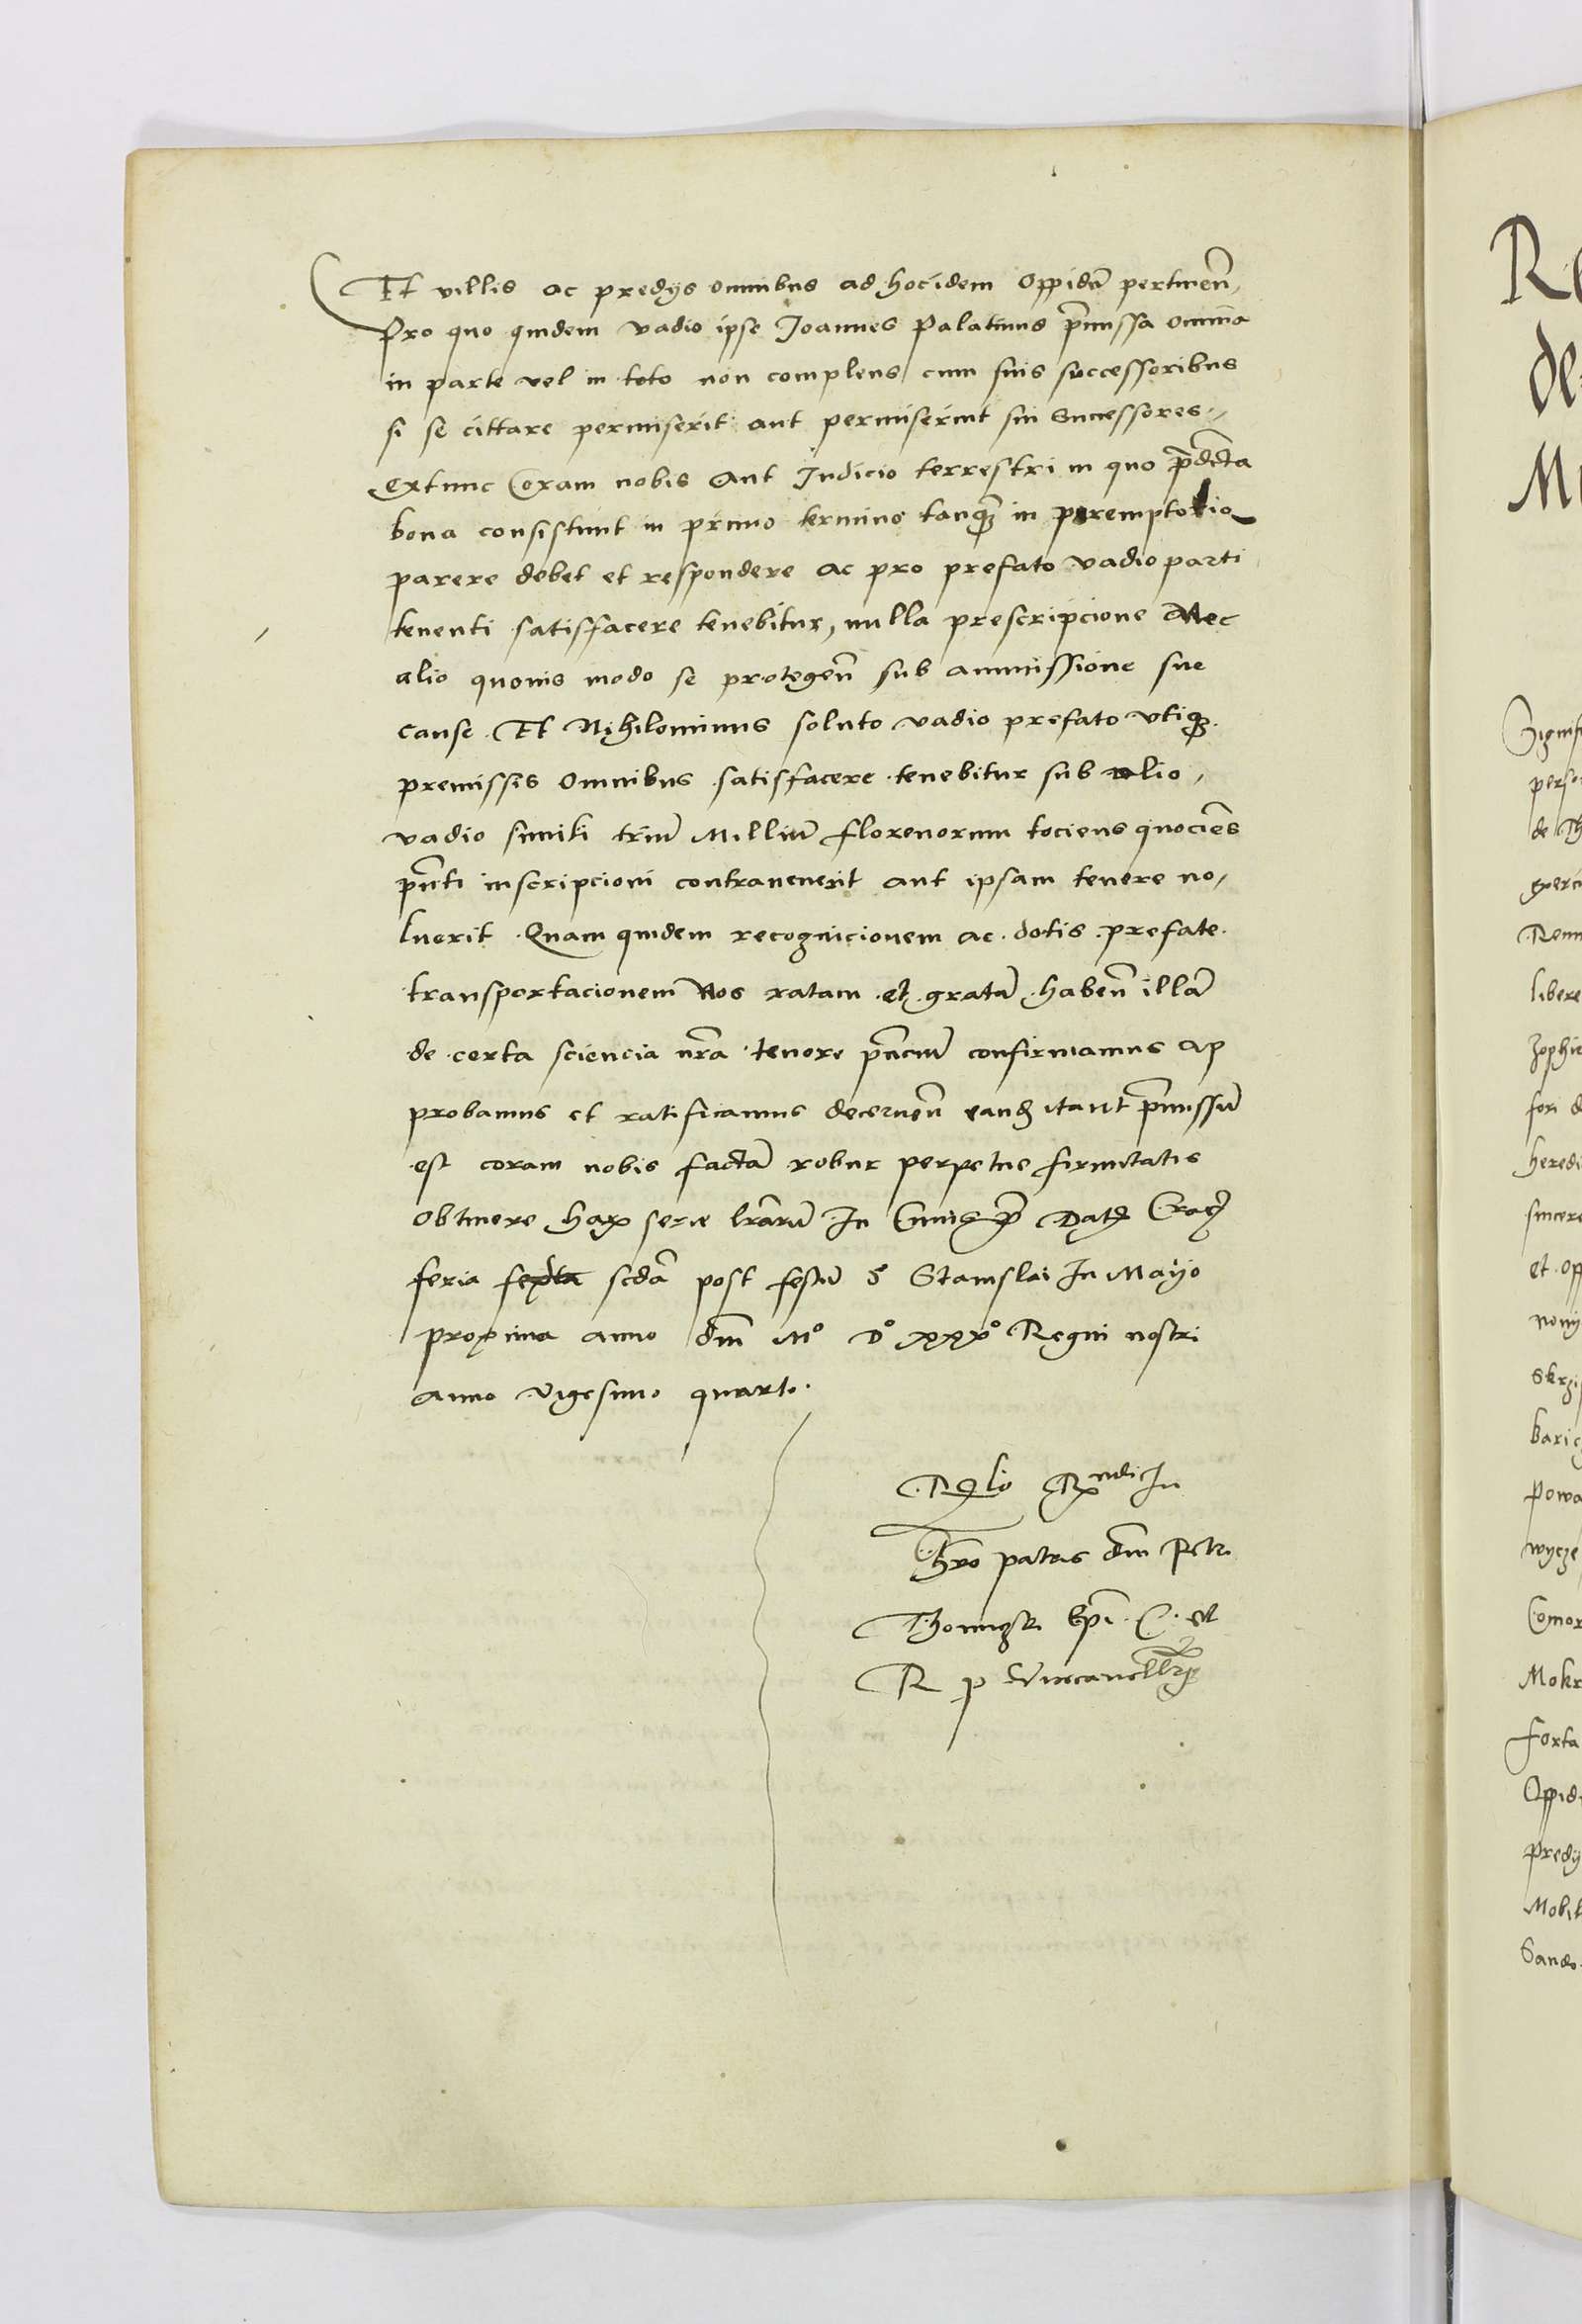 Et villis ac predys omnibus ad hocidem Oppidū pertinen̄,
Pro quo quidem vadio ipse Joannes Palatinus p̄missa omnia
in parte vel in toto non complens cum suis successoribus
si se cittare permiserit aut permiserint sui Successores,
extunc Coram nobis Aut Judicio terrestri in quo p̄dicta
bona consistunt in primo termino tanq̄ in peremptorio
parere debet et respondere ac pro prefato vadio parti
tenenti satisfacere tenebitur, nulla prescripcione Nec
alio quovis modo se protegen̄ sub ammissione sue
cause. Et Nihilominus soluto vadio prefato vtiqz
premissis Omnibus satisfacere tenebitur sub alio,
vadio simili triū Milliū florenorum tociens quociēs
pn̄ti inscripcioni contravenerit aut ipsam tenere no,
luerit. Quam quidem recognicionem ac dotis prefate
transportacionem Nos ratam et gratā haben̄ illā
de certa sciencia nr̄a tenore pn̄ciū confirmamus ap
probamus et ratificamus decernen̄ eand itaut p̄missū
est coram nobis factā robur perpetue firmitatis
obtinere harū serie lr̄arū In Cuius Dat Crac
feria sexta scd̄a post festū S Stanislai In Mayo
proxima anno dn̄i Mº Dº xxxº Regni nostri
anno Vigesimo quarto.
Rlo Rndi In
Chro patris dn̄i Petri
Thomiczki Epi. C. et
R p Vicecancellry